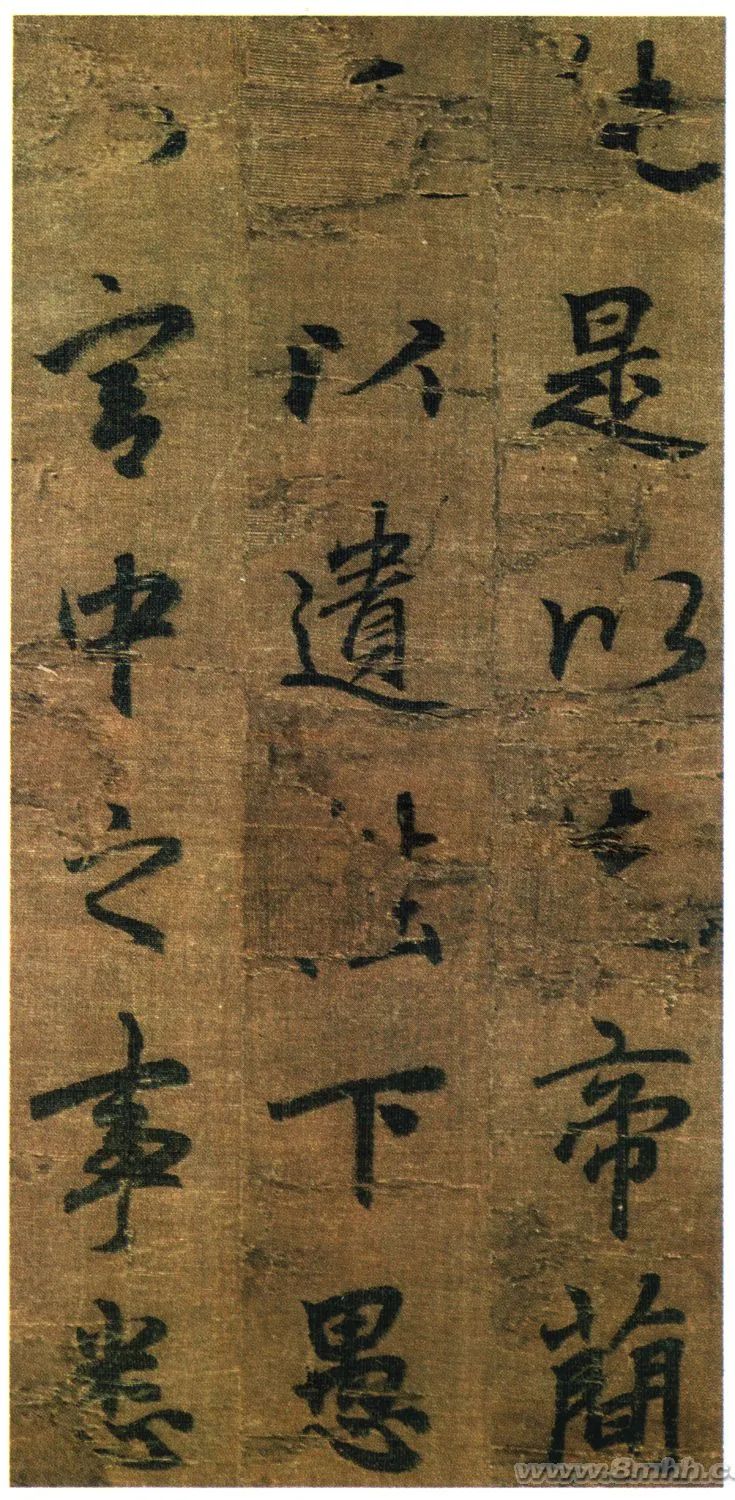 是以帝簡
以遺陛下愚
宮中之事悉
www.8mhh.c